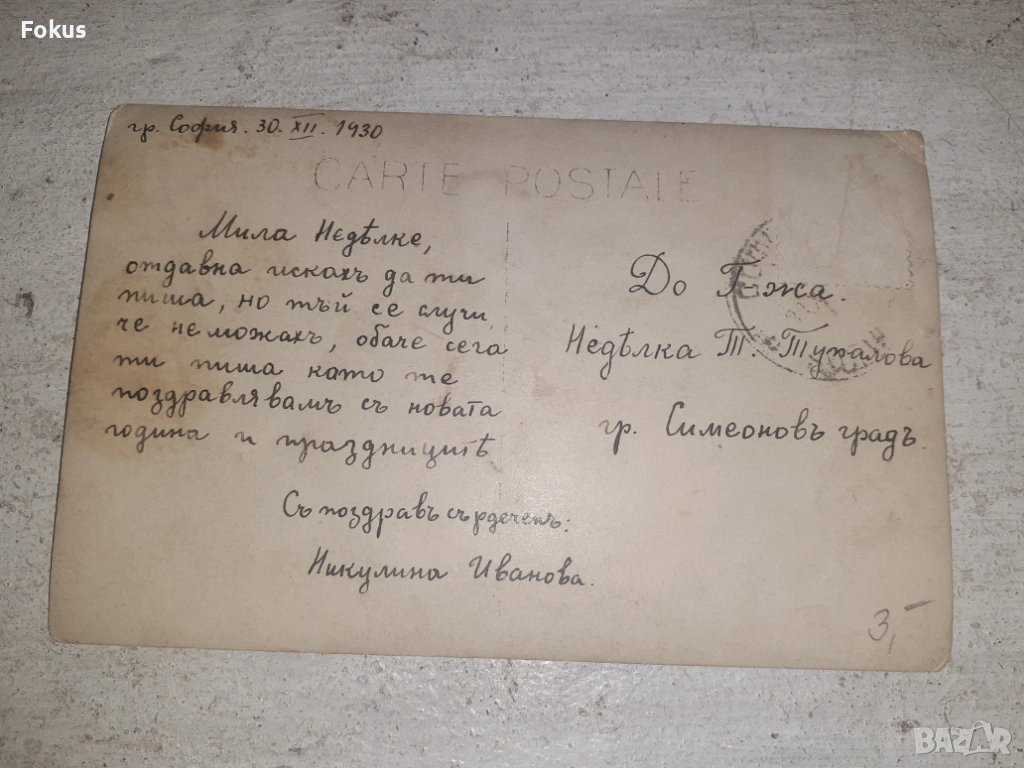 Fokus
гр. София. 30. XII. 1930
CARTE POSTALE
Мила Недѣлке,
отдавна искахъ да ти
пиша, но тъй се случи,
че не можахъ, обаче сега
ти пиша като те
поздравлявамъ съ новата
година и празницитѣ
Съ поздравъ сърдеченъ:
Никулина Иванова.
До Г-жа.
Недѣлка Т. Тужалова
гр. Симеоновъ градъ.
3,-
BAZAR